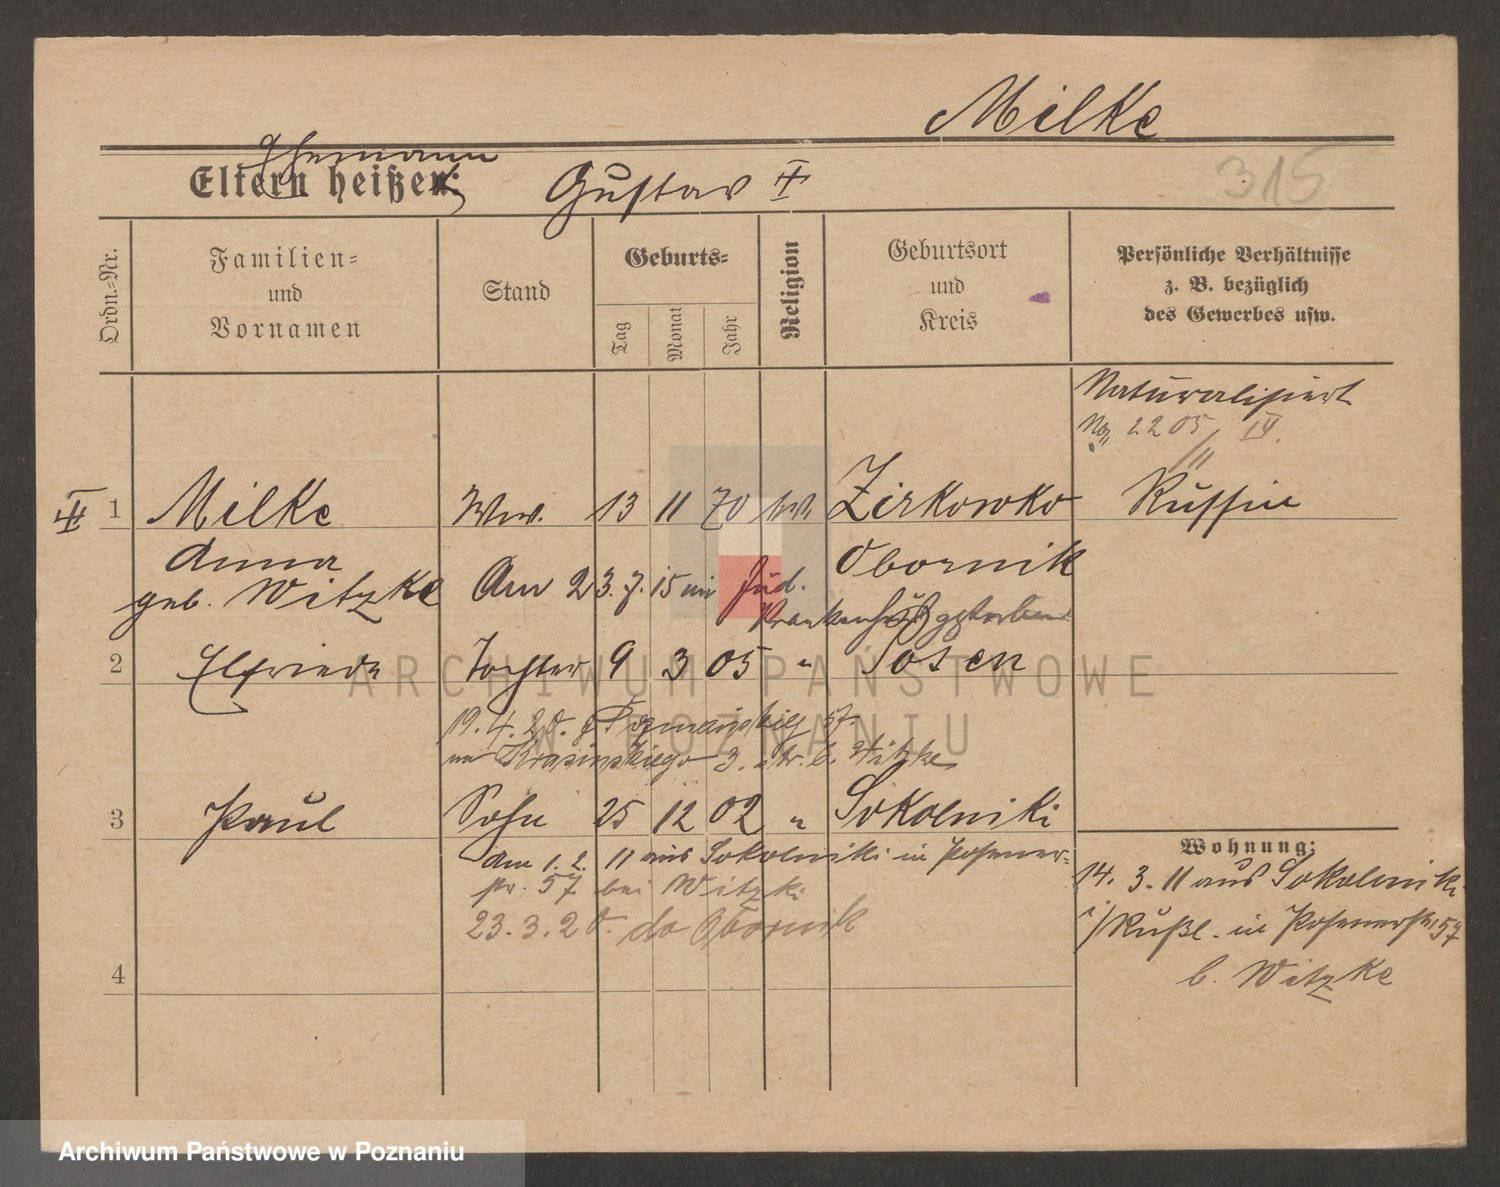 Milke
Ehemann
Eltern heißen: Gustav ‡
315
Ordn.-Nr.
Familien- und Vornamen
Stand
Geburts-
Tag
Monat
Jahr
Religion
Geburtsort und Kreis
Persönliche Verhältnisse
z. B. bezüglich
des Gewerbes usw.
Naturalisiert
2205 IV.
1 Milke Ww. 13 11 70 Zirkowko Russin
Anna Obornik
geb. Witzke Am 23.7.15 im Jüd.
Krankenhaus gestorben
2 Elfriede Tochter 9 3 05 " Posen
19.4.20. Poznańskiej 57
na Krasinskiego 3. b. Witzke
3 Paul Sohn 25 12 02 " Sokolniki
am 1.2.11 aus Sokolniki in Posener-
str. 57 bei Witzki
23.3.20. do Obornik
4
Wohnung:
14.3.11 aus Sokolniki
i/Rußl. in Posenerstr. 57
b. Witzke
ARCHIWUM PAŃSTWOWE
W POZNANIU
Archiwum Państwowe w Poznaniu